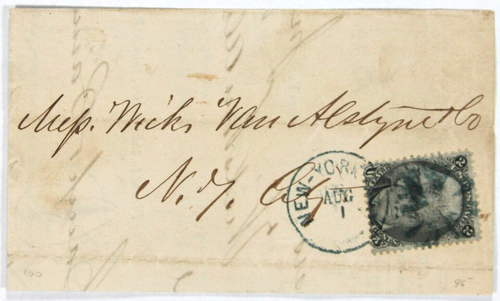 Mess. Wicks Van Alstyne & Co
N.Y. City
NEW-YORK
AUG
1
100
95